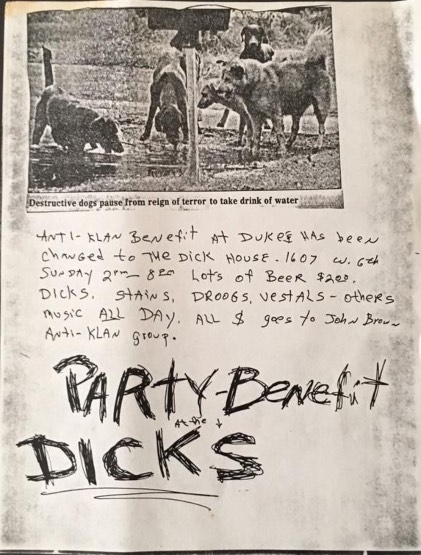 Destructive dogs pause from reign of terror to take drink of water
ANTI-KLAN BENEFIT AT DUKES HAS been
changed to THE DICK HOUSE. 1607 W. 6th
SUNDAY 2pm - 8pm LOTS of BEER $2.00.
DICKS, STAINS, DROOGS, VESTALS - OTHERS
MUSIC ALL DAY. ALL $ goes to John Brown
Anti-KLAN group.
PARTY-BENEFIT
At the
DICKS